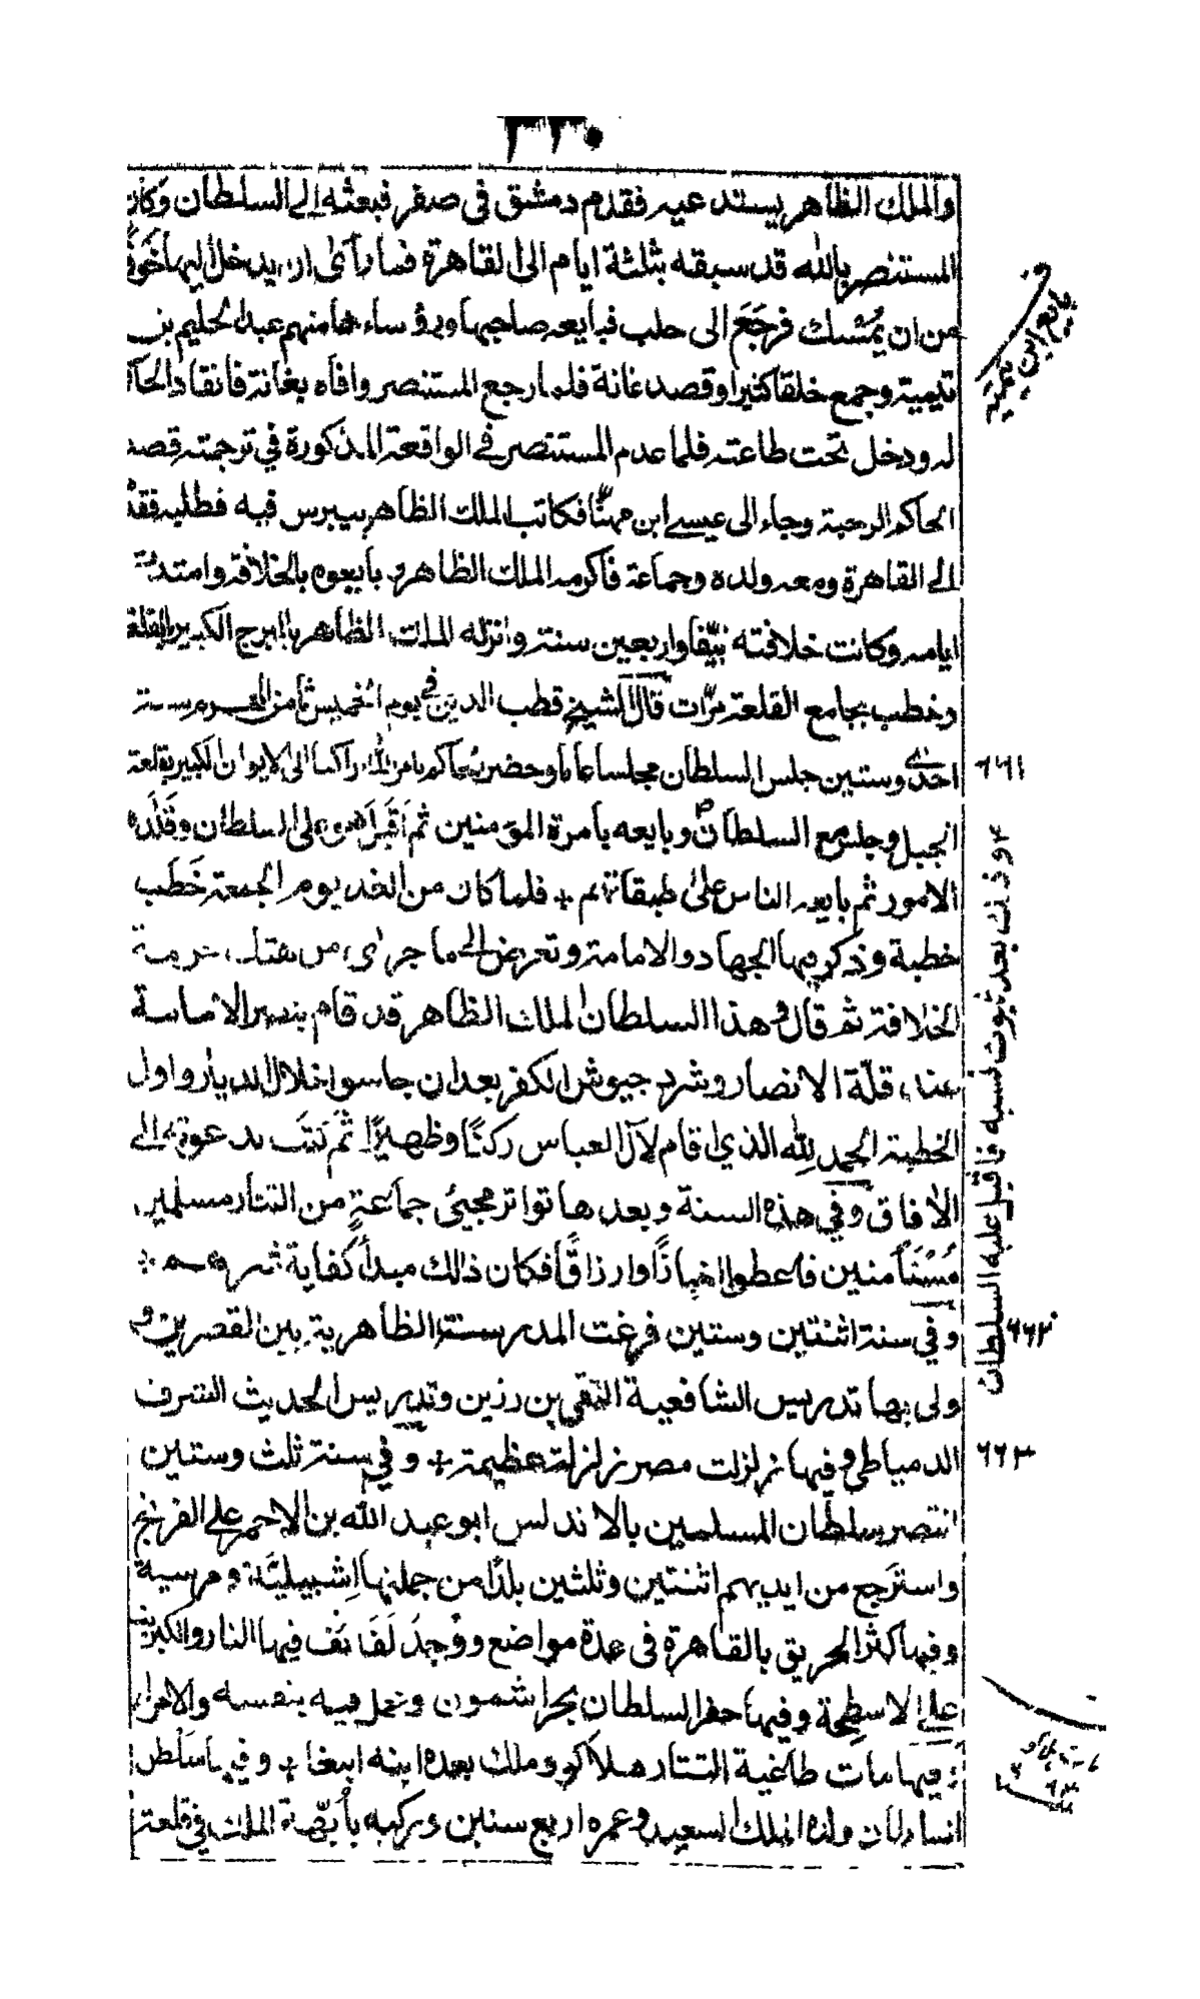 ٣٣٠
والملك الظاهر يستدعيه فقدم دمشق فى صفر فبعثه الى السلطان وكان
المستنصر بالله قد سبقه بثلثة ايام الى القاهرة فما رأى ان يدخل اليها خوفا
من ان يُمْسَك فرجَعَ الى حلب فبايعه صاحبها ورؤساءها منهم عبد الحليم بن
تيمية وجمع خلقا كثيرا وقصد عانة فلما رجع المستنصر وافاه بعانة فانقاد الحاكم
له ودخل تحت طاعته فلما عدم المستنصر فى الواقعة المذكورة في ترجمته قصد
الحاكم الرحبة وجاء الى عيسى ابن مهنّا فكاتب الملك الظاهر بيبرس فيه فطلبه فقدم
الى القاهرة ومعه ولده وجماعة فاكرمه الملك الظاهر و بايعوه بالخلافة وامتدت
ايامه وكانت خلافته نيّفا واربعين سنة وانزله الملك الظاهر بالبرج الكبير بالقلعة
وخطب بجامع القلعة مرّات قال الشيخ قطب الدين في يوم الخميس ثامن المحرم سنة
احدى وستين جلس السلطان مجلسا عاما وحضر الحاكم بامر الله راكبا الى الايوان الكبير بقلعة
الجبل وجلس مع السلطان وبايعه بامرة المؤمنين ثم اَقبَلَ هو على السلطان وقَلَّده
الامور ثم بايعه الناس على طبقاتهم + فلما كان من الغد يوم الجمعة خَطَب
خطبة وذكر فيها الجهاد والامامة وتعرض الى ما جرى من هتك حرمة
الخلافة ثم قال و هذا السلطان الملك الظاهر قد قام بنصر الامامة
عند قلّة الانصار وشرد جيوش الكفر بعد ان جاسوا خلال الديار واول
الخطبة الحمد لله الذي اقام لآل العباس ركنًا وظهيرًا ثم كتَب بدعوته الى
الأفاق وفي هذه السنة وبعدها تواتر مجيئ جماعةٍ من التتار مسلمين
مُسْتَأمنين فاعطوا اخبازًا وارزاقًا فكان ذالك مبدأ كفاية شرهم +
وفي سنة اثنتين وستين فرغت المدرسة الظاهرية بين القصرين و
ولى بها تدريس الشافعية التقي بن رزين وتدريس الحديث الشرف
الدمياطي و فيها زلزلت مصر زلزلة عظيمة + وفي سنة ثلث وستين
انتصر سلطان المسلمين بالاندلس ابو عبد الله بن الاحمر على الفرنج
واسترجع من ايديهم اثنتين وثلثين بلدًا من جملتها اشبيليَّة ومرسية
وفيها كثر الحريق بالقاهرة فى عدة مواضع ووُجِدَ لَفَائف فيها النار والكبريت
على الاسطحة وفيها حفر السلطان بحر اشمون وعمل فيه بنفسه والامراء
وفيها مات طاغية التتار هلاكو وملك بعده ابنه ابغا + وفيها سَلْطَن
السلطان ولده الملك السعيد و عمره اربع سنين وركبه بأُبّهة الملك في قلعة
بايع ابن تيمية
٦٦١
وذلك بعد ثبوت نسبه فاقبل عليه السلطان
٦٦٢
٦٦٣